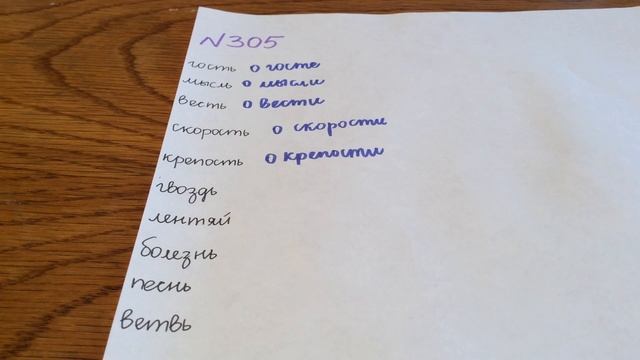 N305
гость о госте
мысль о мысли
весть о вести
скорость о скорости
крепость о крепости
гвоздь
лентяй
болезнь
песнь
ветвь